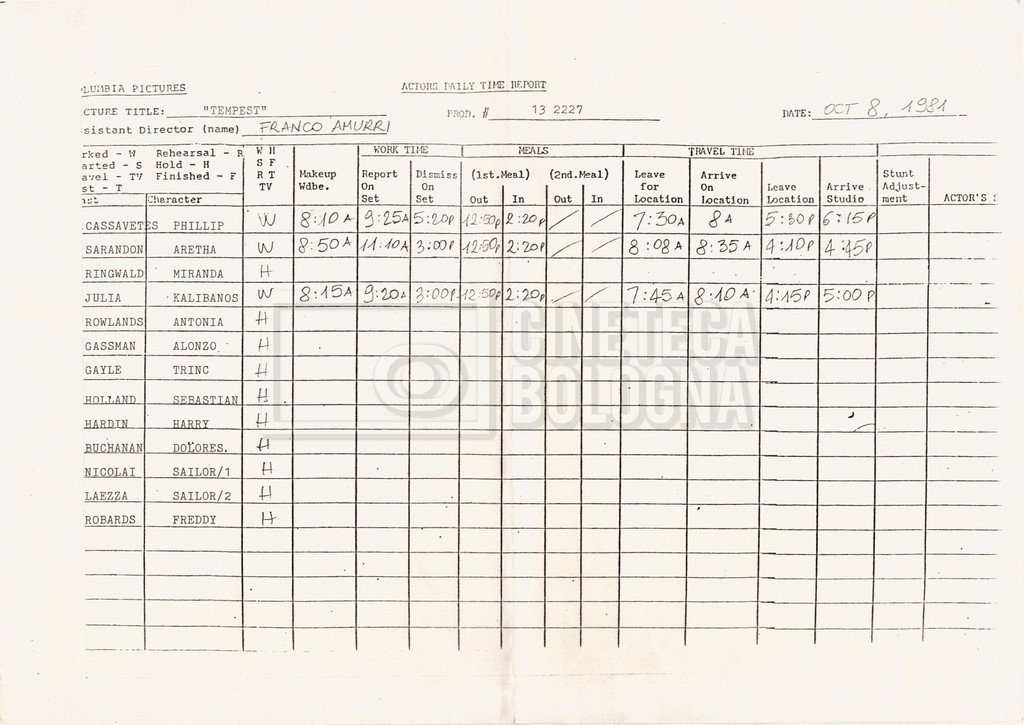 LUMBIA PICTURES ACTORS DAILY TIME REPORT
CTURE TITLE: "TEMPEST" PROD. # 13 2227 DATE: OCT 8, 1981
sistant Director (name) FRANCO AMURRI
rked - W Rehearsal - R W H WORK TIME MEALS TRAVEL TIME
arted - S Hold - H S F Makeup Report Dismiss (1st.Meal) (2nd.Meal) Leave Arrive Leave Arrive Stunt
avel - TV Finished - F R T Wdbe. On On for On Location Studio Adjust-
st - T TV Set Set Out In Out In Location Location ment ACTOR'S S
Character
CASSAVETES PHILLIP W 8:10A 9:25A 5:20P 12:50P 2:20P / / 7:30A 8A 5:30P 6:15P
SARANDON ARETHA W 8:50A 11:10A 3:00P 12:50P 2:20P / / 8:08A 8:35A 4:10P 4:45P
RINGWALD MIRANDA H
JULIA KALIBANOS W 8:15A 9:20A 3:00P 12:50P 2:20P / / 7:45A 8:10A 4:15P 5:00P
ROWLANDS ANTONIA H
GASSMAN ALONZO. H
GAYLE TRINC H
HOLLAND SEBASTIAN H
HARDIN HARRY H
BUCHANAN DOLORES. H
NICOLAI SAILOR/1 H
LAEZZA SAILOR/2 H
ROBARDS FREDDY H
CINETECA
BOLOGNA